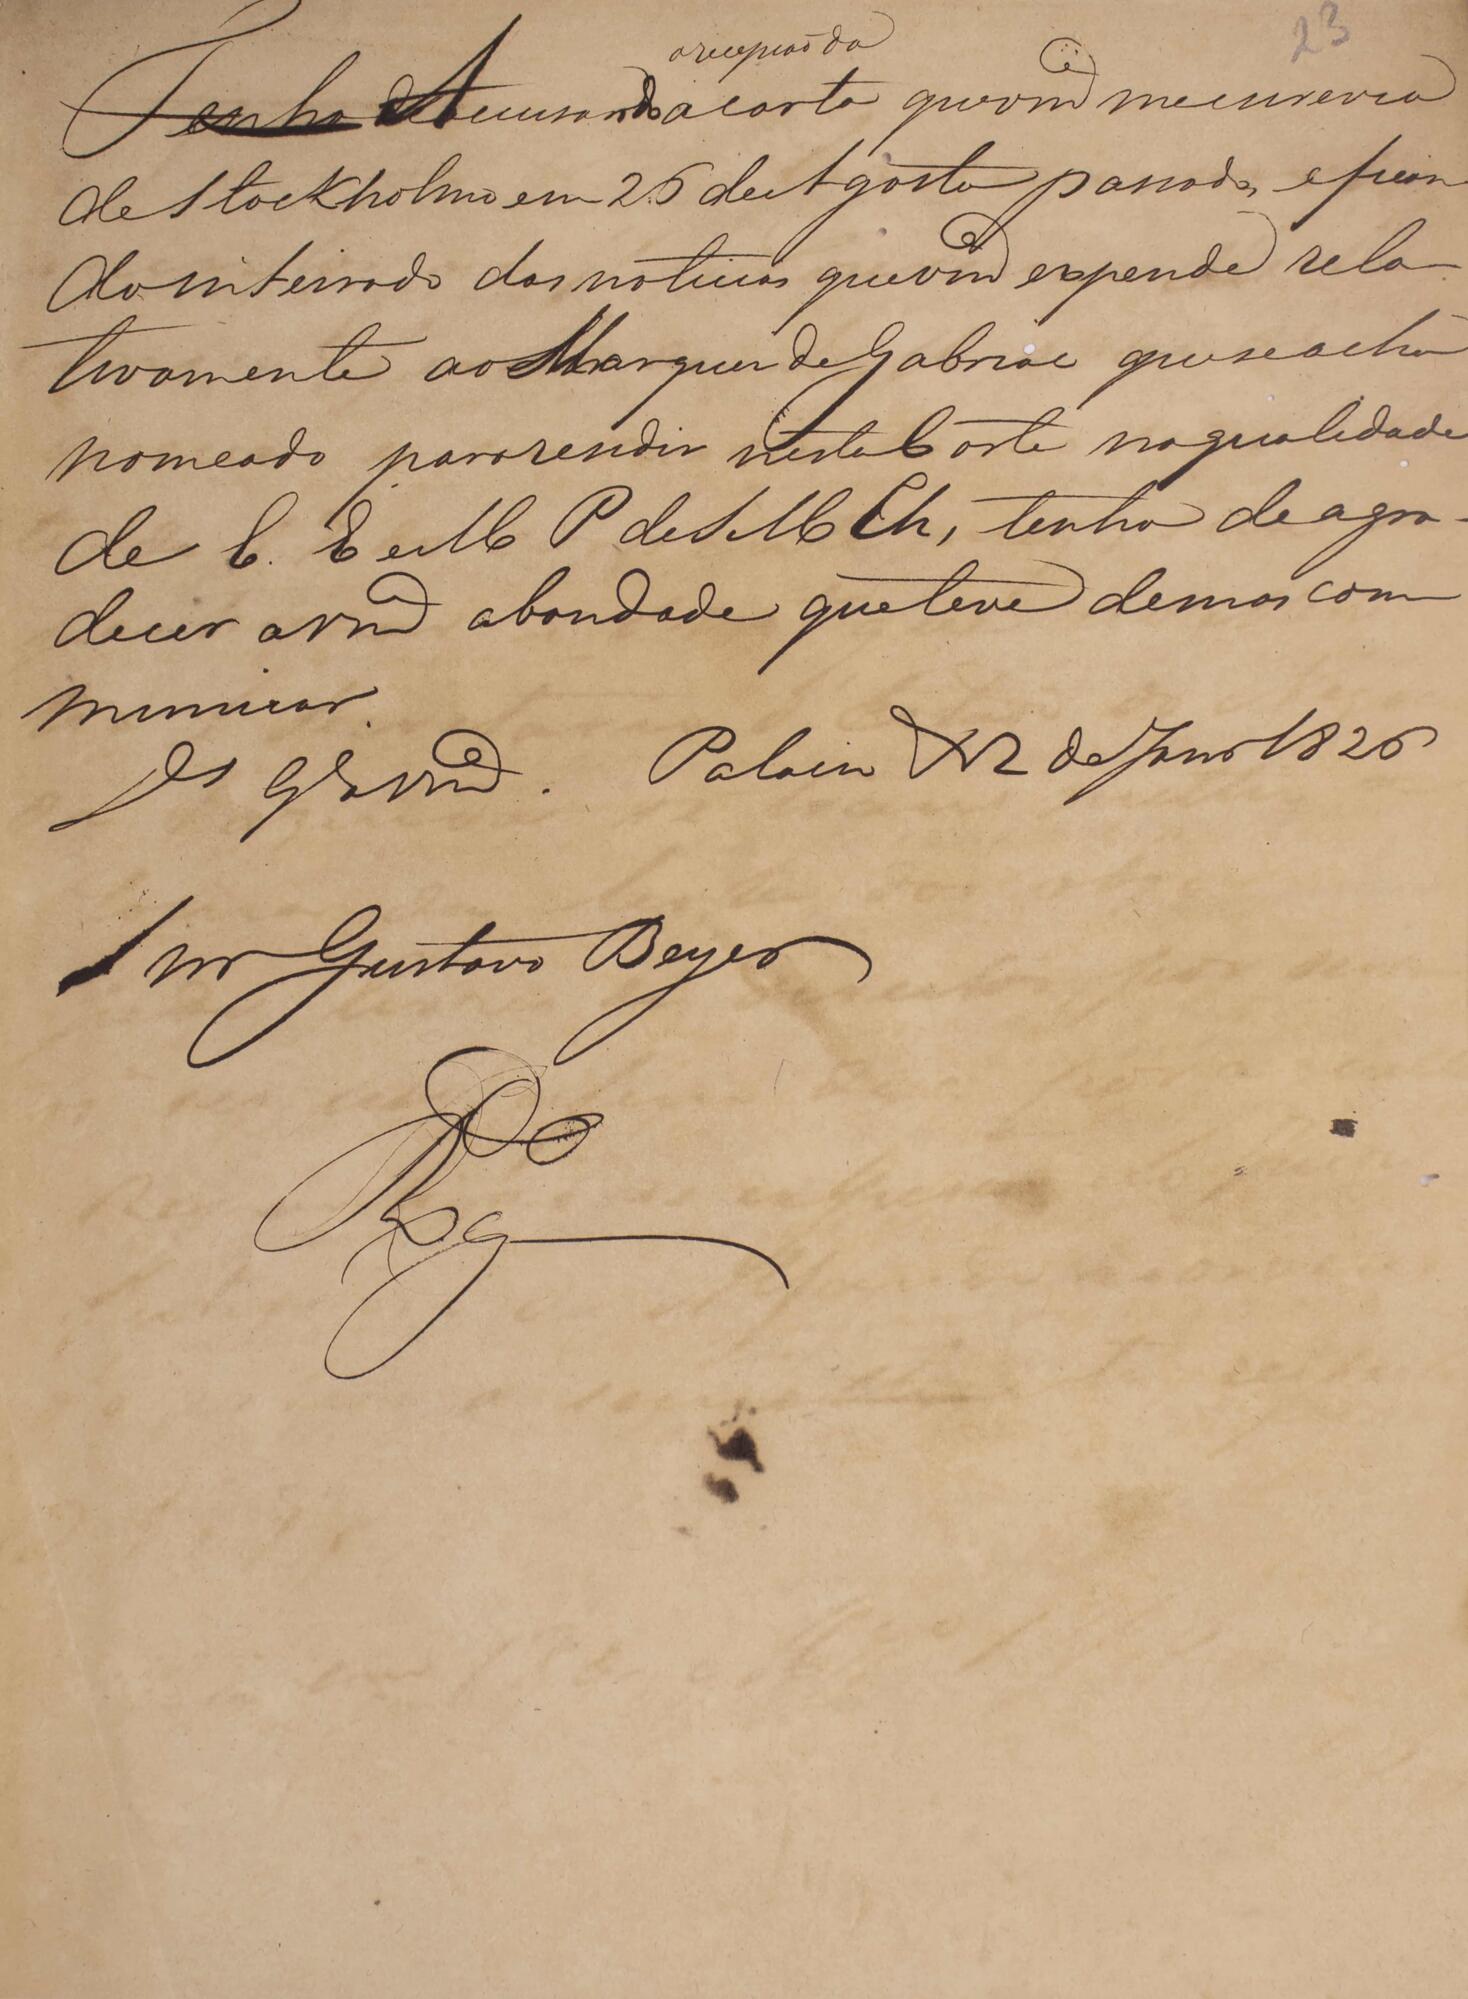 23
a recepção da
Tenho de Accusando a carta que vm̃ce me escreveo
de Stockholmo em 26 de Agosto passado, e fican
do inteirado das noticias que vm̃ce expende rela
tivamente ao Marquez de Gabriac que se acha
nomeado para rendir nesta Corte na qualidade
de E. E e M P de S. M Ch, tenho de agra-
decer a vm̃ce a bondade que teve de mas com
municar.
Ds Gde a vm̃ce. Palacio 12 de Janro 1826
Snr Gustavo Beyer